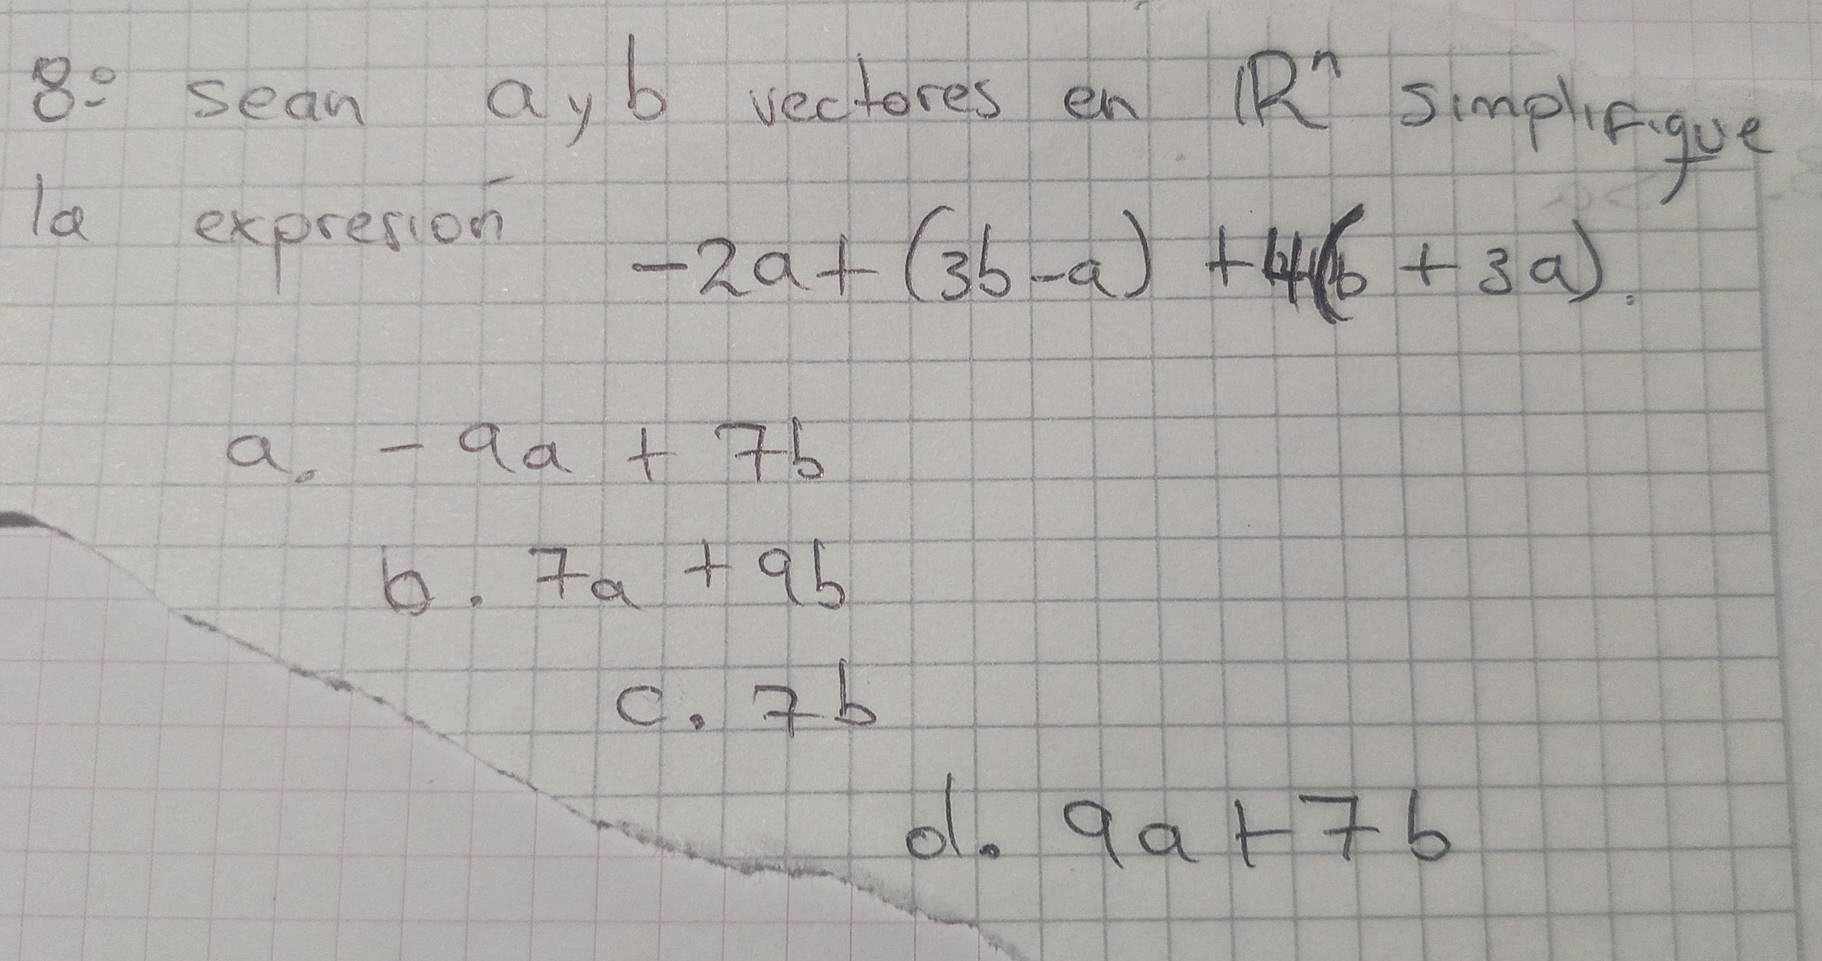 8º sean a y b vectores en ℝⁿ simplifique
la expresión -2a + (3b-a) + 4(b + 3a).
a. -9a + 7b
b. 7a + 9b
c. 7b
d. 9a + 7b